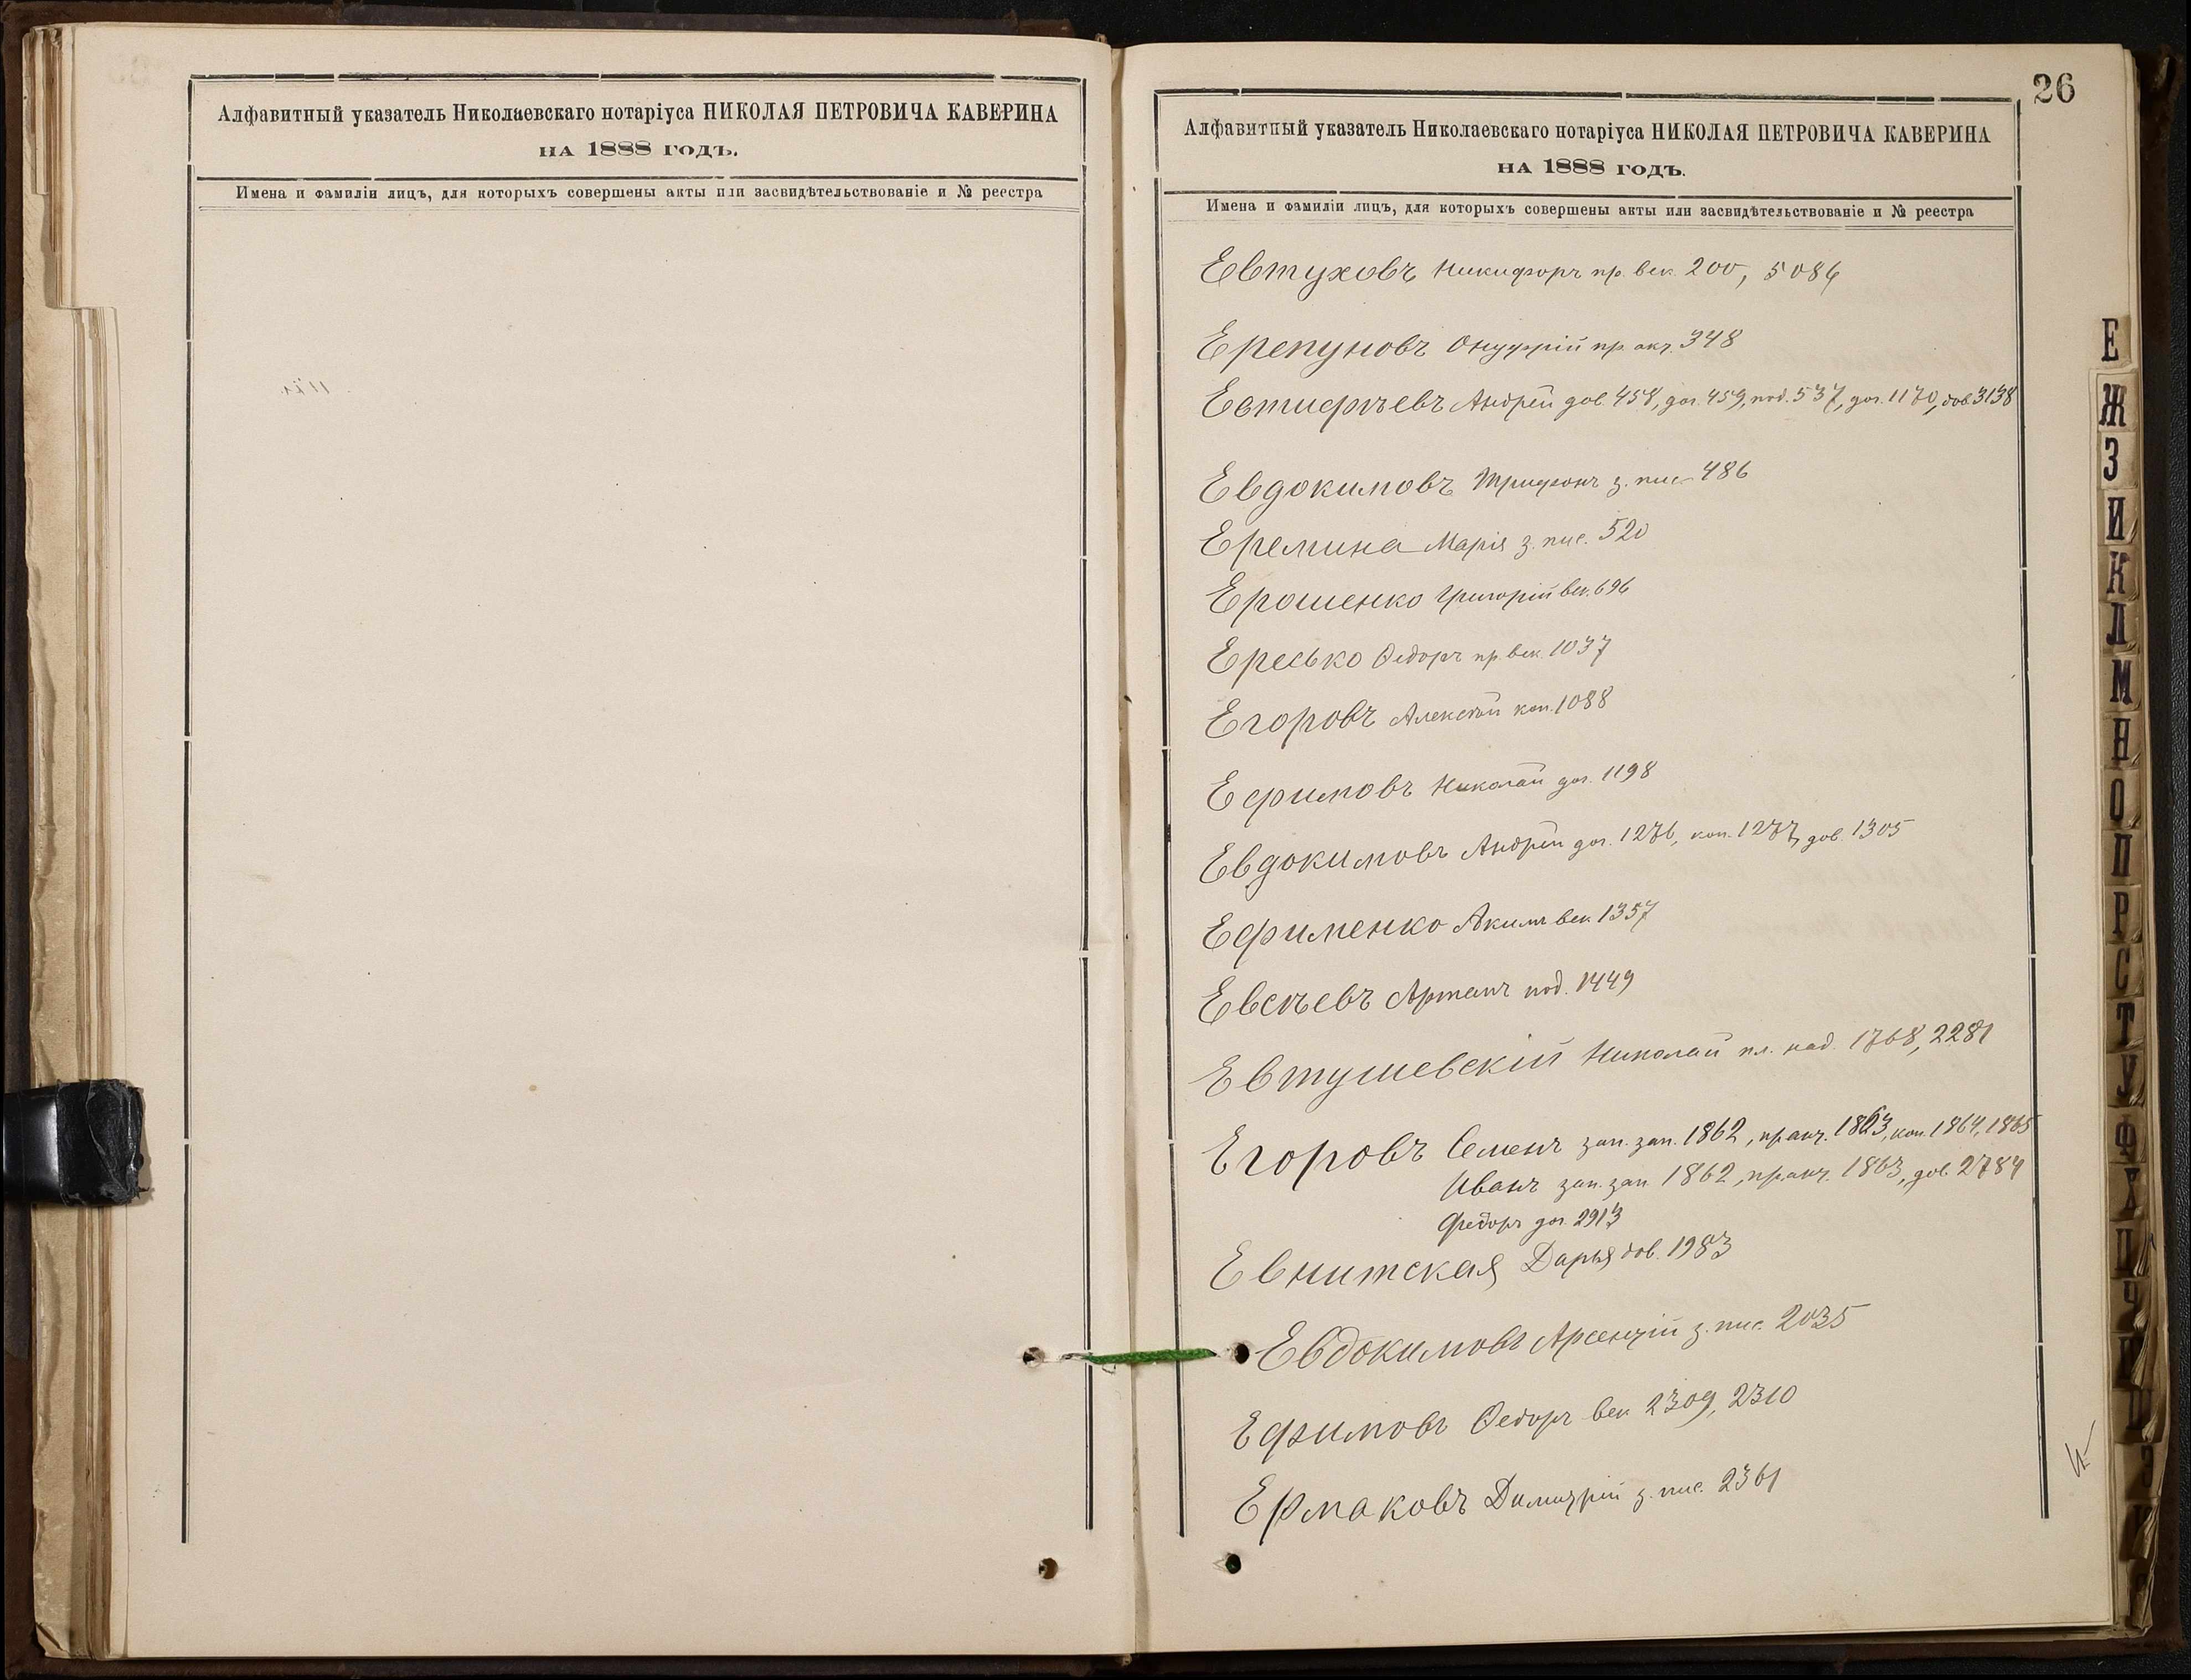 Алфавитный указатель Николаевскаго нотаріуса НИКОЛАЯ ПЕТРОВИЧА КАВЕРИНА
НА 1888 ГОДЪ.
Имена и фамиліи лицъ, для которыхъ совершены акты или засвидѣтельствованіе и № реестра
26
Алфавитный указатель Николаевскаго нотаріуса НИКОЛАЯ ПЕТРОВИЧА КАВЕРИНА
НА 1888 ГОДЪ.
Имена и фамиліи лицъ, для которыхъ совершены акты или засвидѣтельствованіе и № реестра
Евтуховъ Никифоръ пр. век. 200, 5086
Ерепуновъ Онуфрій пр. акт. 348
Евтифѣевъ Андрей дов. 458, дог. 459, под. 537, дог. 1170, дов. 3138
Евдокимовъ Трифонъ з. пис. 486
Еремина Марія з. пис. 520
Ерошенко Григорій век. 696
Ересько Ѳедоръ пр. век. 1037
Егоровъ Алексѣй коп. 1088
Ефимовъ Николай дог. 1198
Евдокимовъ Андрей дог. 1276, коп. 1277, дов. 1305
Ефименко Акимъ век. 1357
Евсѣевъ Артемъ под. 1449
Евтушевскій Николай пл. над. 1768, 2281
Егоровъ Семенъ зап. зап. 1862, пр. акт. 1863, коп. 1864, 1865
Иванъ зап. зап. 1862, пр. акт. 1863, дов. 2784
Федоръ дог. 2913
Евнитская Дарья дов. 1983
Евдокимовъ Арсентій з. пис. 2035
Ефимовъ Ѳедоръ век. 2309, 2310
Ермаковъ Димитрій з. пис. 2361
Е
Ж
З
И
К
Л
М
Н
О
П
Р
С
Т
У
Ф
Х
Ц
Ч